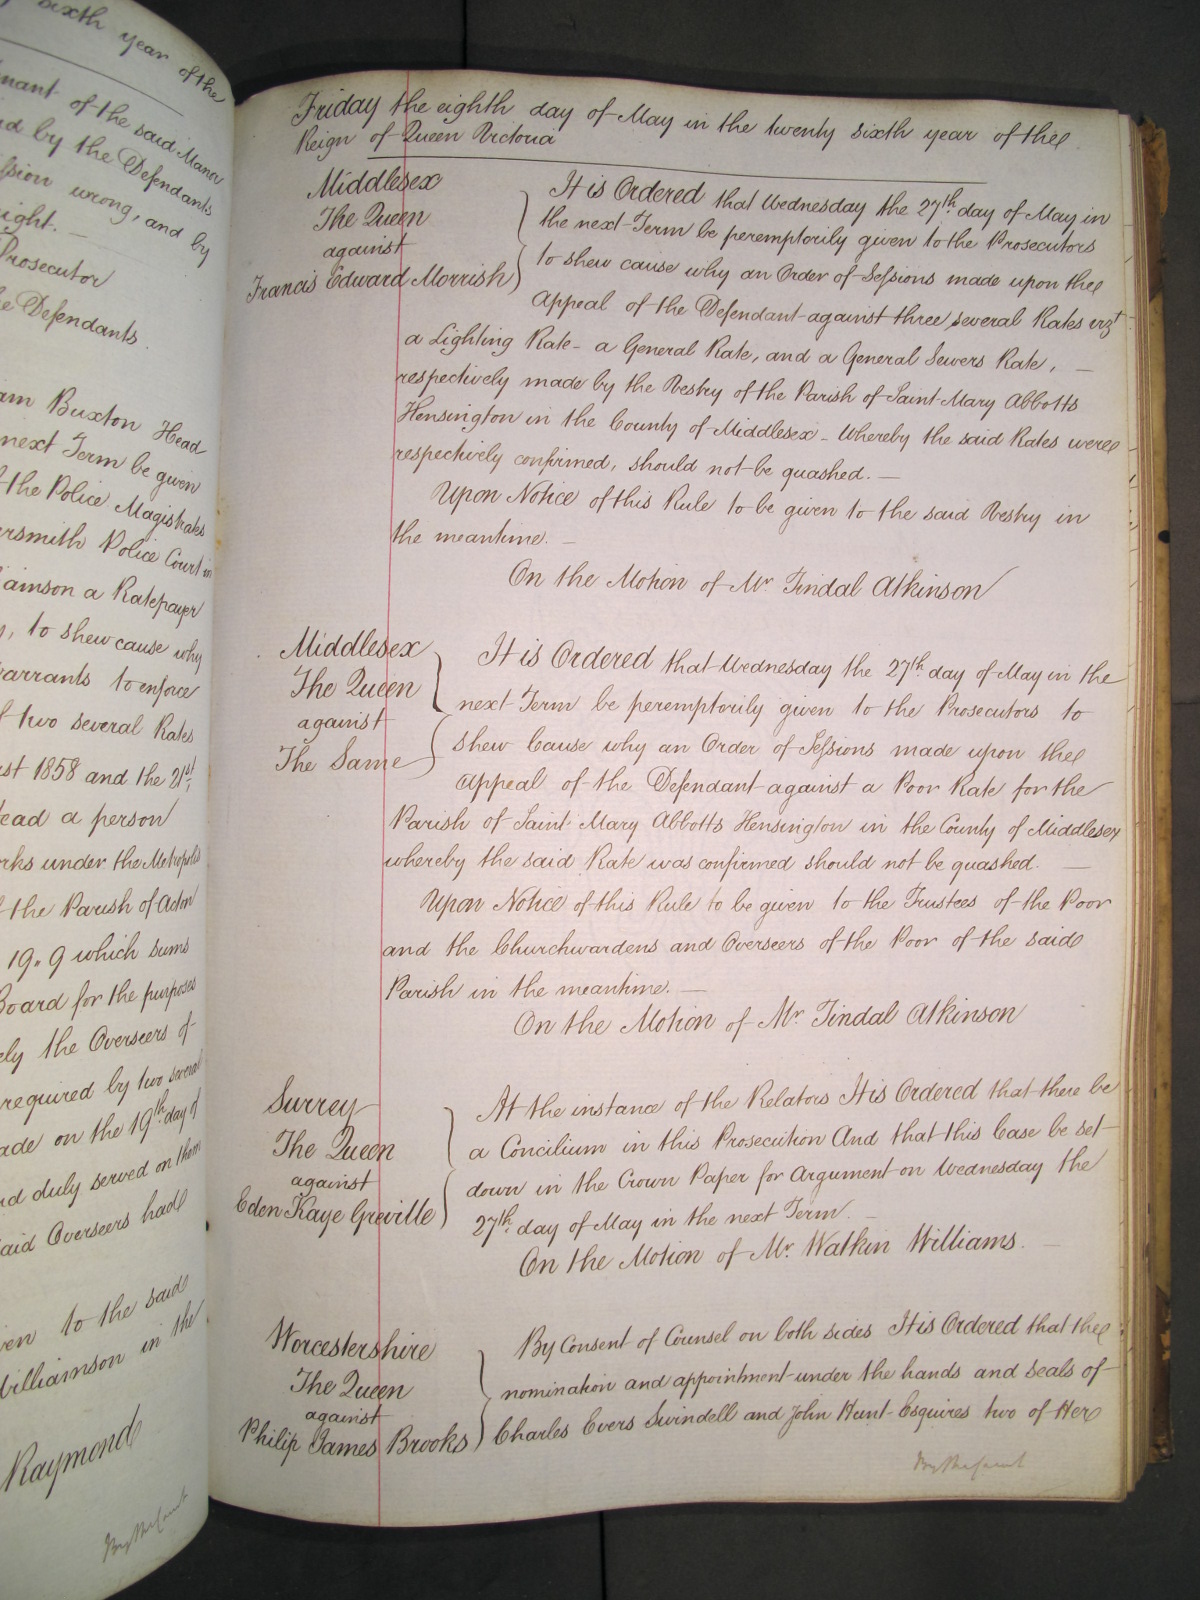 sixth year of the
nant of the said Manor
nd by the Defendants
ssion wrong, and by
ight. —
Prosecutor
he Defendants.
am Buxton Head
next Term be given
f the Police Magistrates
rsmith Police Court in
iamson a Ratepayer
, to shew cause why
arrants to enforce
f two several Rates
st 1858 and the 21st
ead a person
rks under the Metropolis
f the Parish of Acton
19.. 9 which sums
Board for the purposes
ely the Overseers of
required by two several
ade on the 19th day of
nd duly served on them
said Overseers had
ven to the said
Williamson in the
Raymond
Friday the eighth day of May in the twenty sixth year of the
Reign of Queen Victoria
Middlesex
The Queen
against
Francis Edward Morrish
It is Ordered that Wednesday the 27th day of May in
the next Term be peremptorily given to the Prosecutors
to shew cause why an Order of Sessions made upon the
Appeal of the Defendant against three several Rates vizt
a Lighting Rate - a General Rate, and a General Sewers Rate, —
respectively made by the Vestry of the Parish of Saint Mary Abbotts
Kensington in the County of Middlesex - Whereby the said Rates were
respectively confirmed, should not be quashed. —
Upon Notice of this Rule to be given to the said Vestry in
the meantime. —
On the Motion of Mr. Tindal Atkinson
Middlesex
The Queen
against
The Same
It is Ordered that Wednesday the 27th day of May in the
next Term be peremptorily given to the Prosecutors to
shew Cause why an Order of Sessions made upon the
Appeal of the Defendant against a Poor Rate for the
Parish of Saint Mary Abbotts Kensington in the County of Middlesex
whereby the said Rate was confirmed should not be quashed. —
Upon Notice of this Rule to be given to the Trustees of the Poor
and the Churchwardens and Overseers of the Poor of the said
Parish in the meantime. —
On the Motion of Mr. Tindal Atkinson
Surrey
The Queen
against
Eden Kaye Greville
At the instance of the Relators It is Ordered that there be
a Concilium in this Prosecution And that this Case be set
down in the Crown Paper for Argument on Wednesday the
27th day of May in the next Term. —
On the Motion of Mr. Watkin Williams. —
Worcestershire
The Queen
against
Philip James Brooks
By Consent of Counsel on both sides It is Ordered that the
nomination and appointment under the hands and seals of
Charles Evers Swindell and John Hunt Esquires two of Her